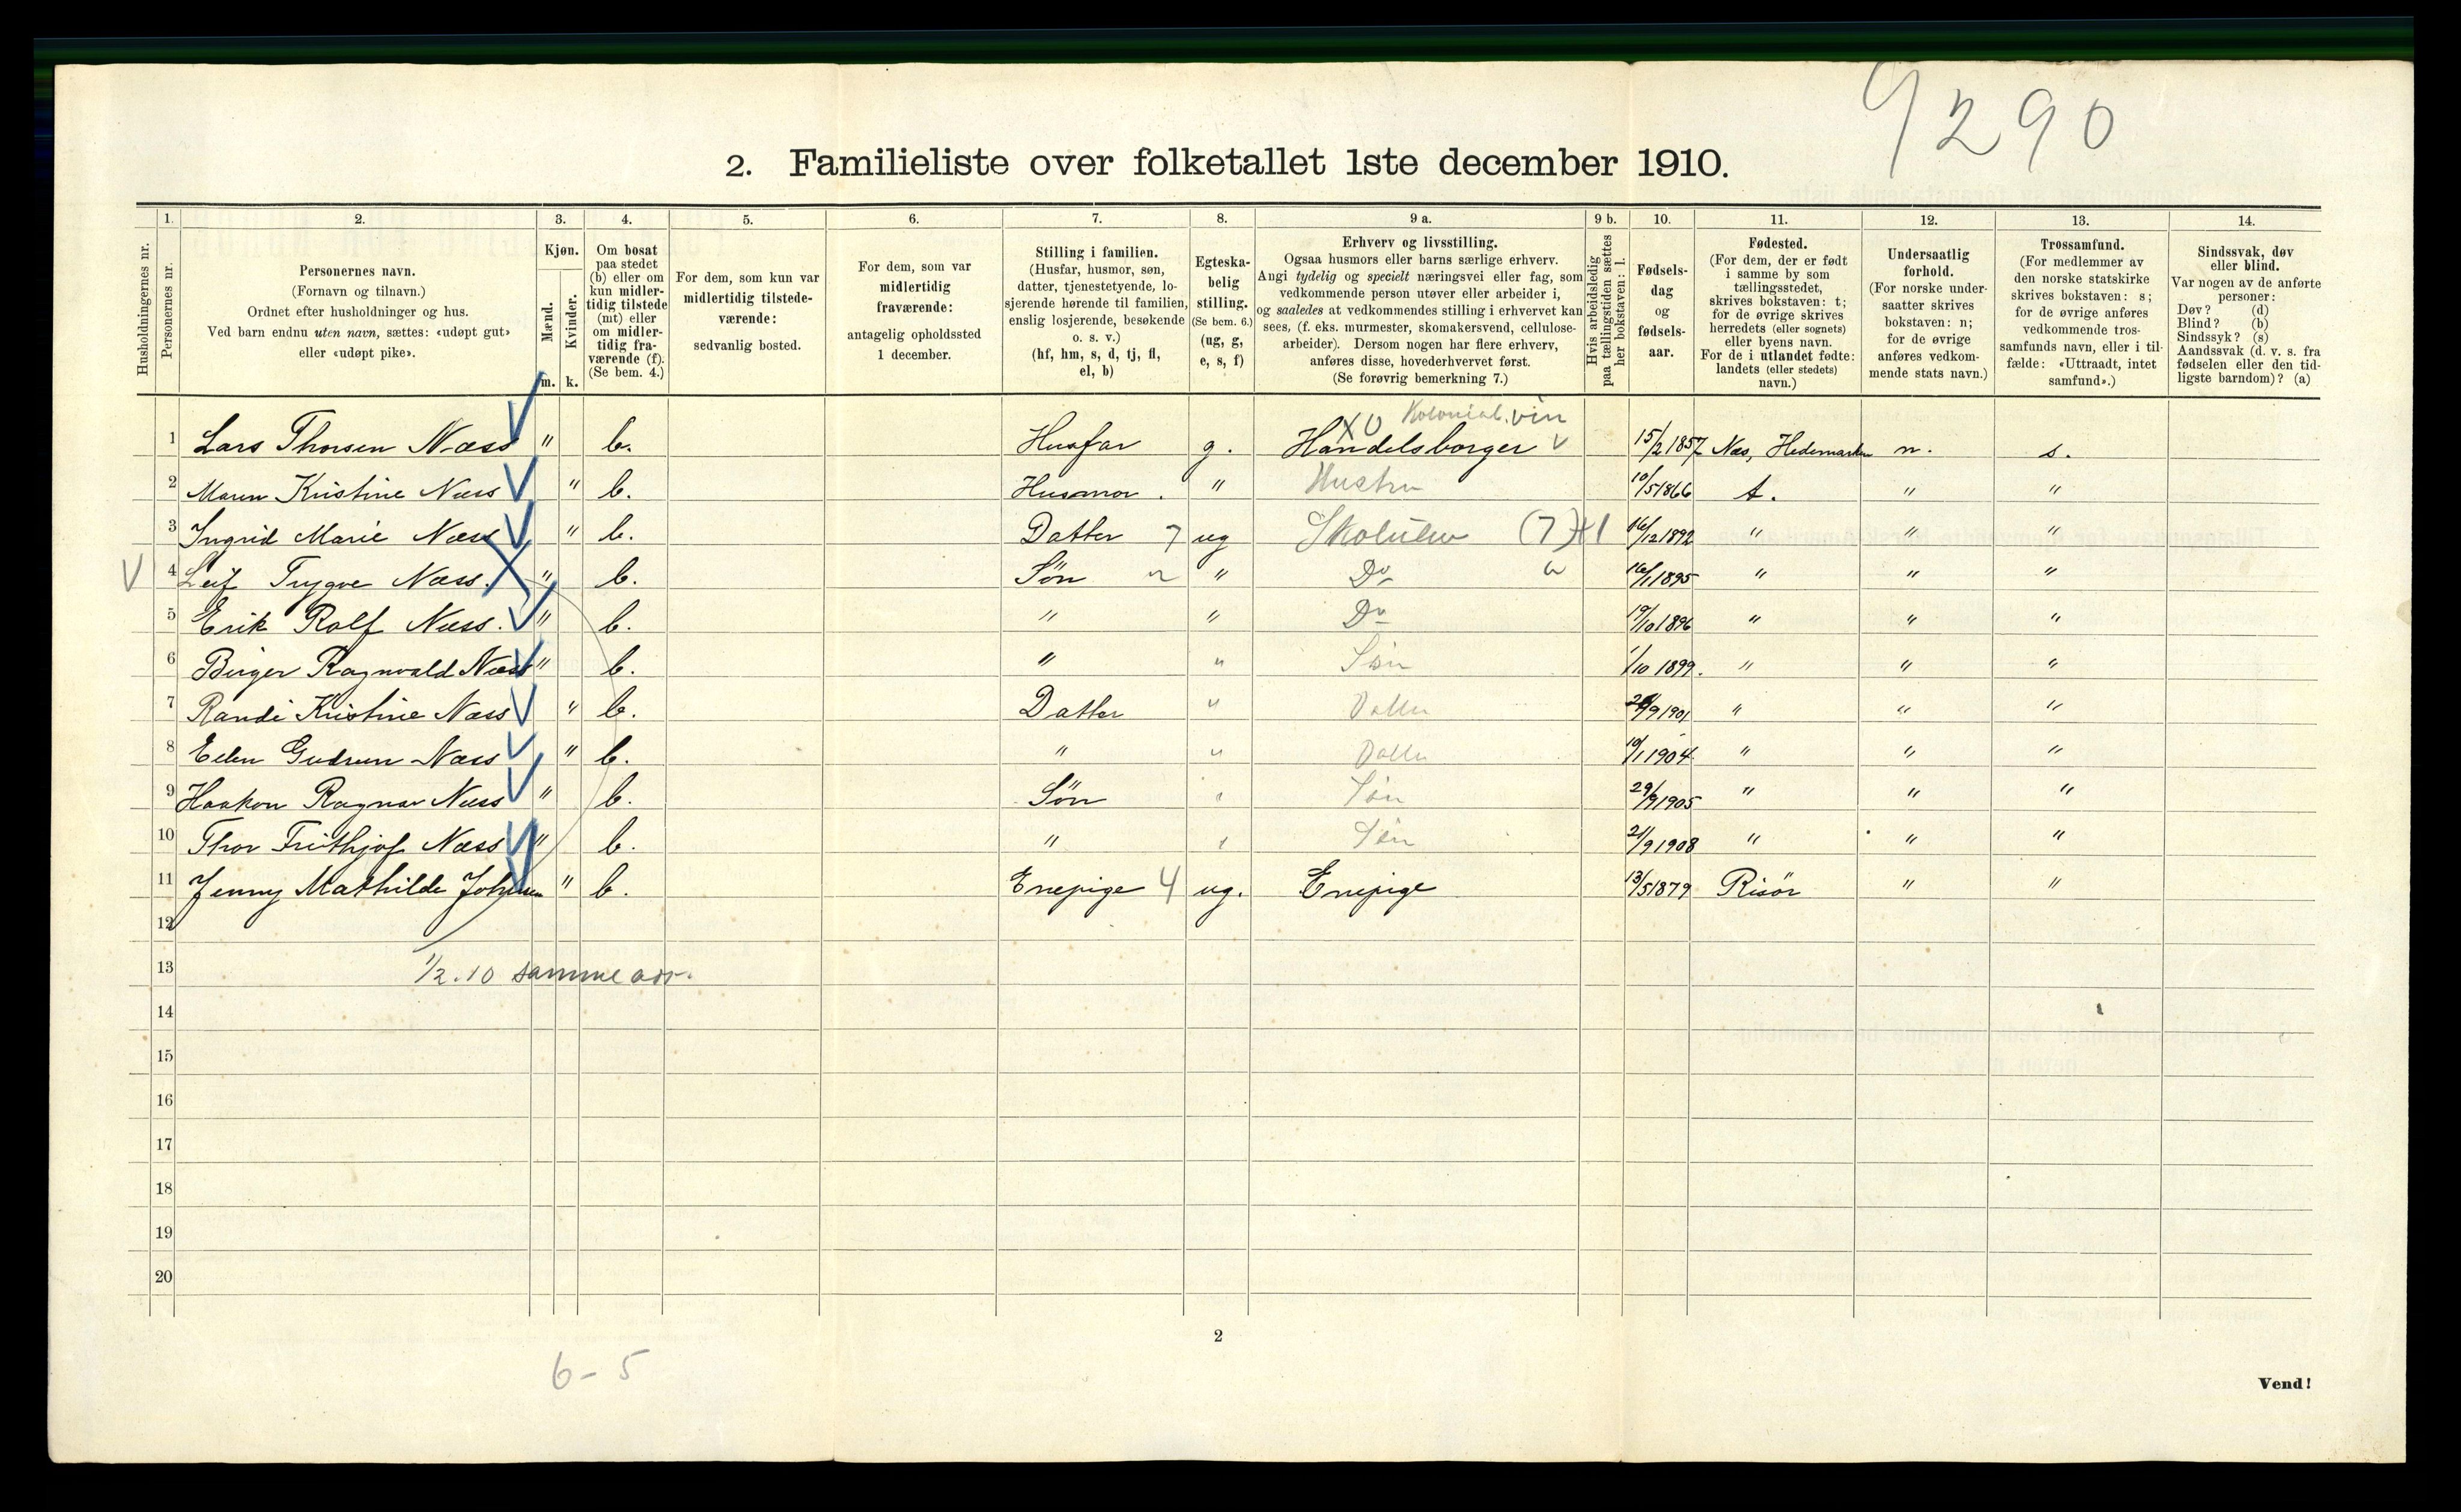 9290
2. Familieliste over folketallet 1ste december 1910.
Husholdningernes nr.
1. Personernes nr.
2. Personernes navn. (Fornavn og tilnavn.) Ordnet efter husholdninger og hus. Ved barn endnu uten navn, sættes: «udøpt gut» eller «udøpt pike».
3. Kjøn. Mænd. m. Kvinder. k.
4. Om bosat paa stedet (b) eller om kun midlertidig tilstede (mt) eller om midlertidig fraværende (f). (Se bem. 4.)
5. For dem, som kun var midlertidig tilstedeværende: sedvanlig bosted.
6. For dem, som var midlertidig fraværende: antagelig opholdssted 1 december.
7. Stilling i familien. (Husfar, husmor, søn, datter, tjenestetyende, losjerende hørende til familien, enslig losjerende, besøkende o. s. v.) (hf, hm, s, d, tj, fl, el, b)
8. Egteskabelig stilling. (Se bem. 6.) (ug, g, e, s, f)
9 a. Erhverv og livsstilling. Ogsaa husmors eller barns særlige erhverv. Angi tydelig og specielt næringsvei eller fag, som vedkommende person utøver eller arbeider i, og saaledes at vedkommendes stilling i erhvervet kan sees, (f. eks. murmester, skomakersvend, cellulosearbeider). Dersom nogen har flere erhverv, anføres disse, hovederhvervet først. (Se forøvrig bemerkning 7.)
9 b. Hvis arbeidsledig paa tællingstiden sættes her bokstaven: l.
10. Fødselsdag og fødselsaar.
11. Fødested. (For dem, der er født i samme by som tællingsstedet, skrives bokstaven: t; for de øvrige skrives herredets (eller sognets) eller byens navn. For de i utlandet fødte: landets (eller stedets) navn.)
12. Undersaatlig forhold. (For norske undersaatter skrives bokstaven: n; for de øvrige anføres vedkommende stats navn.)
13. Trossamfund. (For medlemmer av den norske statskirke skrives bokstaven: s; for de øvrige anføres vedkommende trossamfunds navn, eller i tilfælde: «Uttraadt, intet samfund».)
14. Sindssvak, døv eller blind. Var nogen av de anførte personer: Døv? (d) Blind? (b) Sindssyk? (s) Aandssvak (d. v. s. fra fødselen eller den tidligste barndom)? (a)
Kolonial. vin
1 Lars Thorsen Næss " b. Husfar g. Handelsborger 15/2 1857 Næs, Hedemarken n. s.
2 Maren Kristine Næss " b. Husmor. " Hustru 10/5 1866 t. " "
3 Ingrid Marie Næss " b. Datter 7 ug (7) 16/12 1892 " " "
4 Leif Trygve Næss. " b. Søn " Do 16/1 1895 " " "
5 Erik Rolf Næss. " b. " " Do 19/10 1896 " " "
6 Birger Ragnvald Næss " b. " " Søn 1/10 1899. " " "
7 Randi Kristine Næss " b. Datter " Datter /9 1901 " " "
8 Ellen Gudrun Næss " b. " " Datter 10/1 1904 " " "
9 Haakon Ragnar Næss " b. Søn " Søn 29/9 1905 " " "
10 Thor Frithjof Næss " b. " " Søn 21/9 1908 " " "
11 Jenny Mathilde Johnsen " b. Enepige 4 ug. Enepige 13/5 1879 Risör " "
12
13 1/2.10 samme adr.
14
15
16
17
18
19
20
2
6-5
Vend!